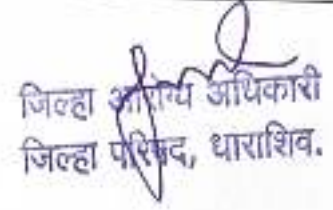 जिल्हा आरोग्य अधिकारी
जिल्हा परिषद, धाराशिव.